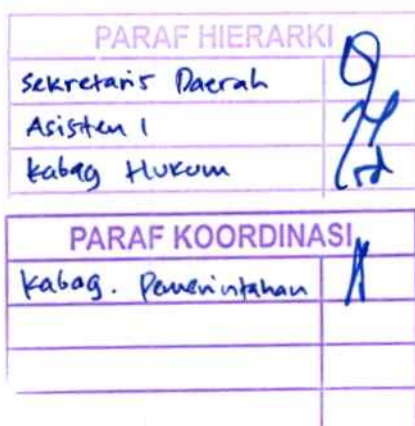 PARAF HIERARKI
Sekretaris Daerah
Asisten 1
Kabag Hukum
PARAF KOORDINASI
Kabag. Pemerintahan